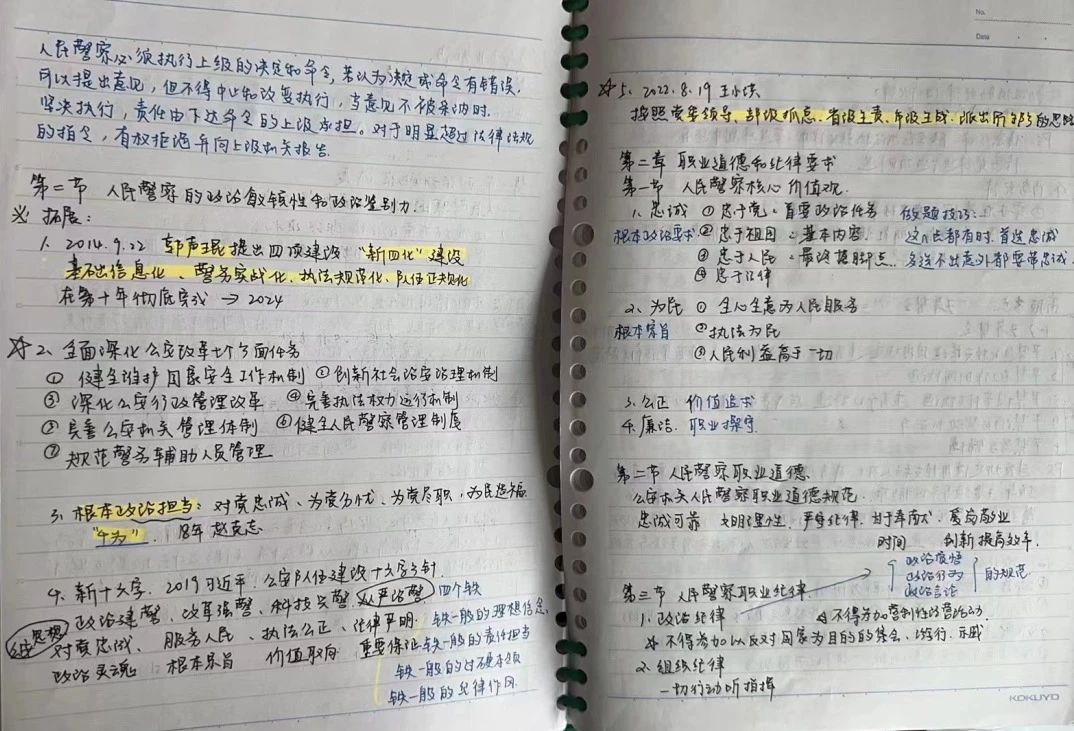 人民警察必须执行上级的决定和命令,若认为决定或命令有错误,
可以提出意见,但不得中止和改变执行,当意见不被采纳时.
坚决执行,责任由下达命令的上级承担。对于明显超过法律法规
的指令,有权拒绝并向上级机关报告.
第二节 人民警察的政治敏锐性和政治鉴别力.
※ 拓展:
1. 2014.9.22 郭声琨提出四项建设 “新四化”建设
基础信息化、警务实战化、执法规范化、队伍正规化
在第十年彻底完成 → 2024
☆2、全面深化公安改革七个方面任务
① 健全维护国家安全工作机制 ②创新社会治安治理机制
③ 深化公安行政管理改革 ④完善执法权力运行机制
⑤ 完善公安机关管理体制 ⑥健全人民警察管理制度
⑦ 规范警务辅助人员管理
3、根本政治担当: 对党忠诚、为党分忧、为党尽职,为民造福
“4为” 18年 赵克志
4. 新十六字. 2019习近平. 公安队伍建设十六字方针.
政治建警、改革强警、科技兴警、从严治警 四个铁
总思想 对党忠诚、服务人民、执法公正、纪律严明. 铁一般的理想信念、
政治灵魂 根本宗旨 价值取向 重要保证 铁一般的责任担当
铁一般的过硬本领
铁一般的纪律作风.
No.
Date
☆5、2022.8.19 王小洪
按照党委领导、部级抓总、省级主责、市级主战、派出所的思路
第二章 职业道德和纪律要求
第一节 人民警察核心价值观.
1. 忠诚 ① 忠于党:首要政治任务 做题技巧:
根本政治要求 ② 忠于祖国:基本内容 这几点都有时.首选忠诚
③ 忠于人民:最终落脚点 多选不出意外都要带忠诚.
④ 忠于法律
2、为民 ① 全心全意为人民服务
根本宗旨 ②执法为民
③人民利益高于一切
3、公正 价值追求
4.廉洁. 职业操守
第二节 人民警察职业道德.
公安机关人民警察职业道德规范.
忠诚可靠 文明理性,严守纪律.甘于奉献.爱岗敬业
时间 创新提高效率.
第三节 人民警察职业纪律
政治态度
政治行为 的规范
政治言论
1. 政治纪律 不得参加营利性经营活动
☆ 不得参加以反对国家为目的的集会、游行、示威
2. 组织纪律
一切行动听指挥
KOKUYO